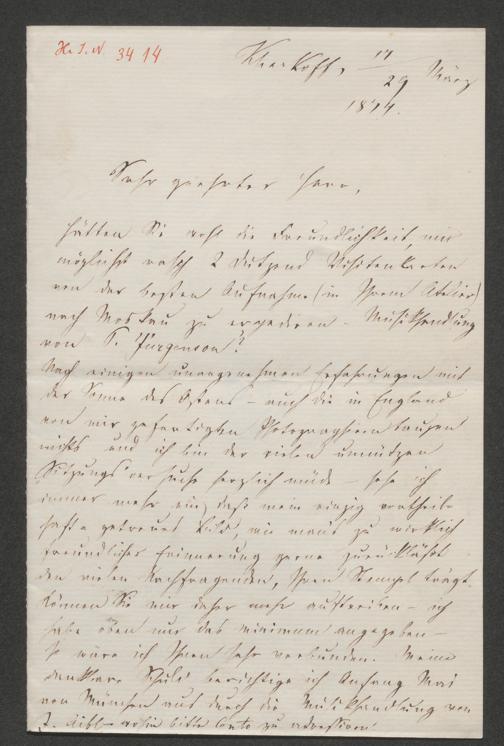 H. I. N. 3414
Kharkoff, 17/29 März
1874.
Sehr geehrter Herr,
hätten Sie wohl die Freundlichkeit, mir
möglichst rasch 2 Dutzend Visitenkarten
von der besten Aufnahme (in Ihrem Atelier)
nach Moskau zu expediren - Musikhandlung
von P. Jürgenson?
Nach einigen unangenehmen Erfahrungen mit
der Sonne des Ostens - auch die in England
von mir gefertigten Photographieen taugen
nichts und ich bin der vielen unnützen
Sitzungsversuche herzlich müde - sehe ich
immer mehr ein, daß mein einzig vortheil-
haftes getreues Bild, wie man's zu wirklich
freundlicher Erinnerung gerne zurückläßt
den vielen Nachfragenden, Ihren Stempel trägt.
Können Sie mir daher mehr auftreiben - ich
habe eben nur das minimum angegeben -
so wäre ich Ihnen sehr verbunden. Meine
dankbare Schuld berichtige ich Anfang Mai
von München aus durch die Musikhandlung von
J. Aibl - wohin bitte Conto zu adressiren.